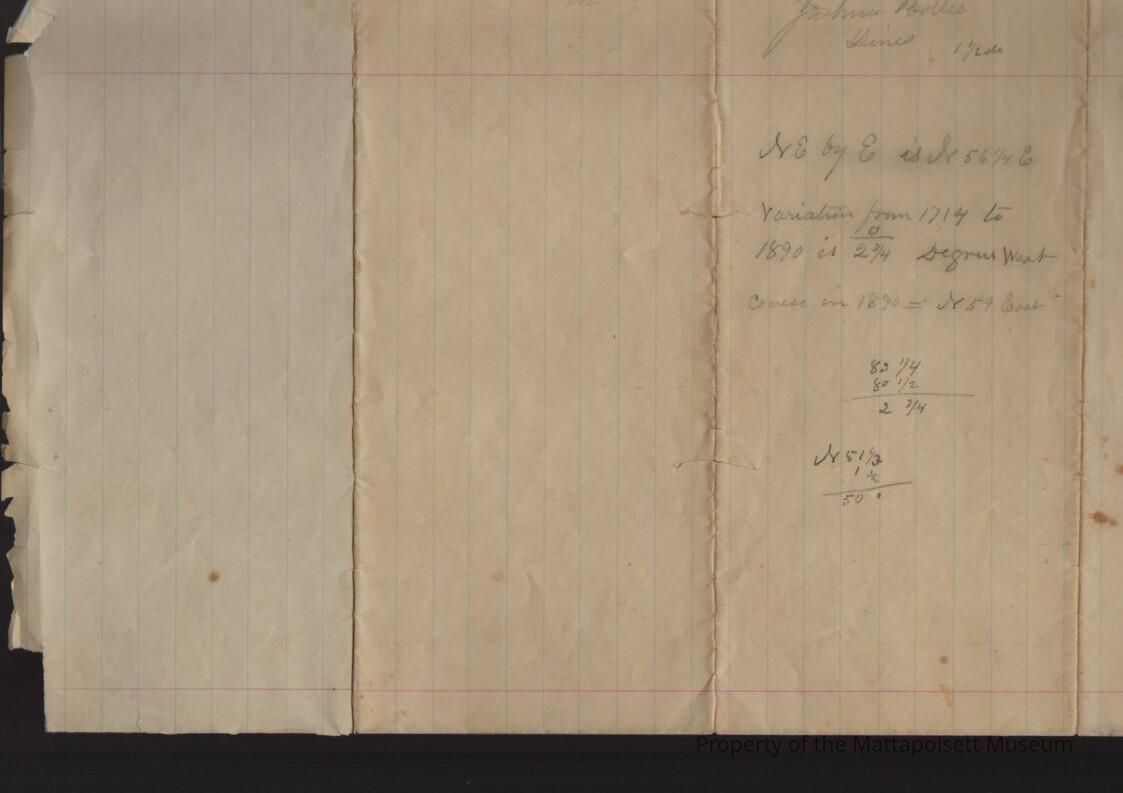 Joshua Bolles
Lines 1 1/2 de
NE by E is N 56 1/4 E
Variation from 1714 to
0
1890 is 2 3/4 Degrees West
Course in 1890 = N 59 East
83 1/4
80 1/2
2 3/4
N 51 1/2
1 1/2
50 °
Property of the Mattapoisett Museum